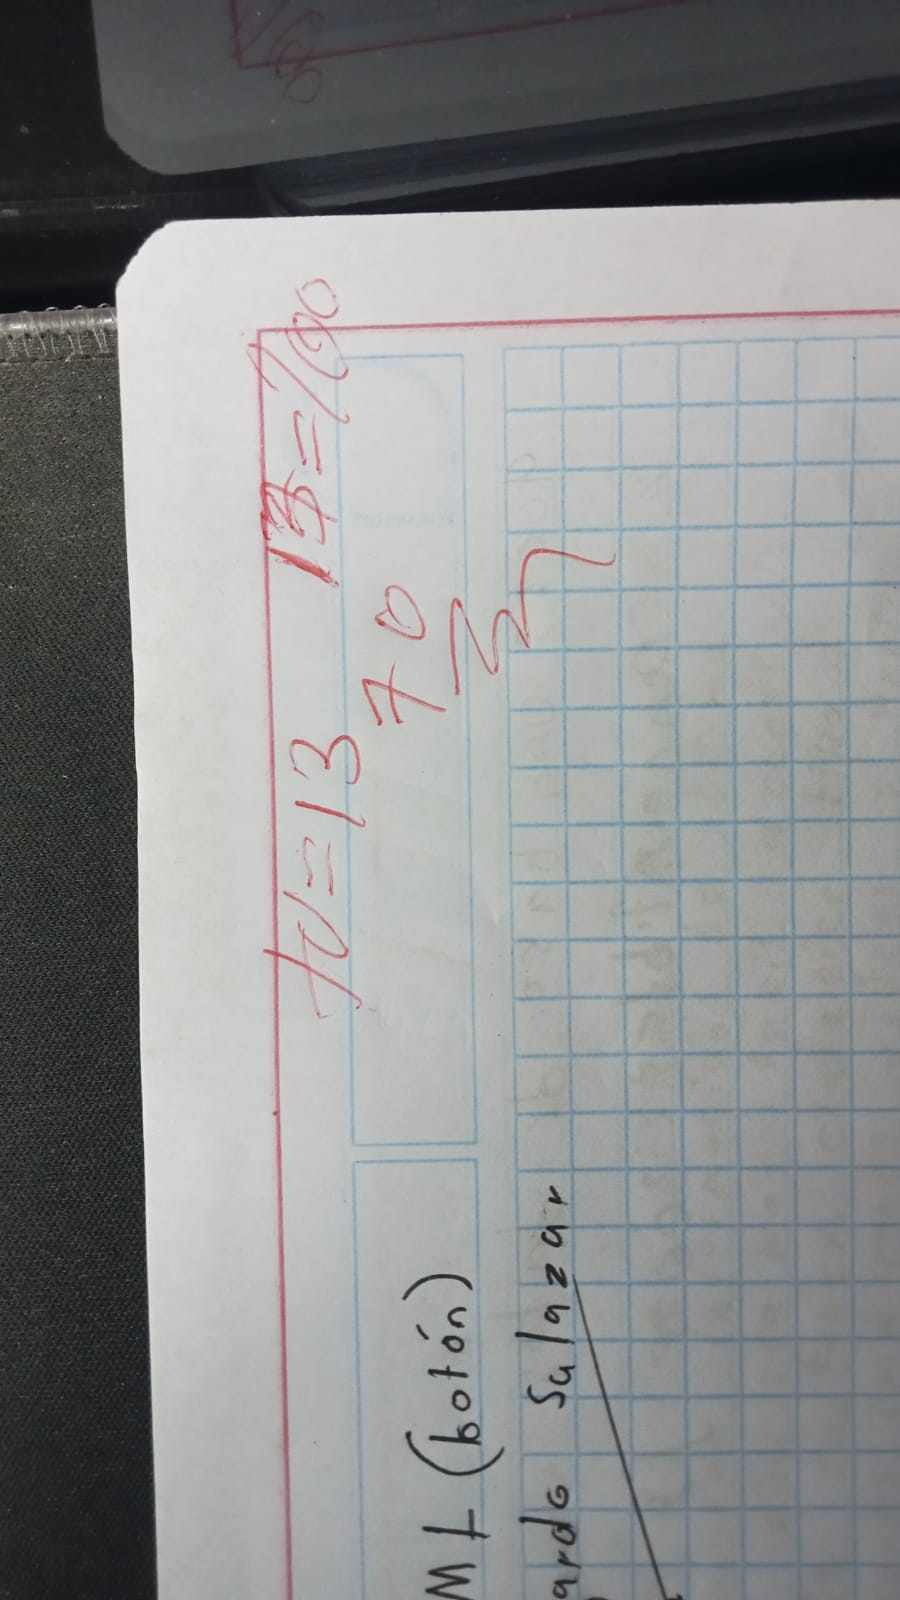 tv=13 13=100
70
ML (botón)
ardo Salazar